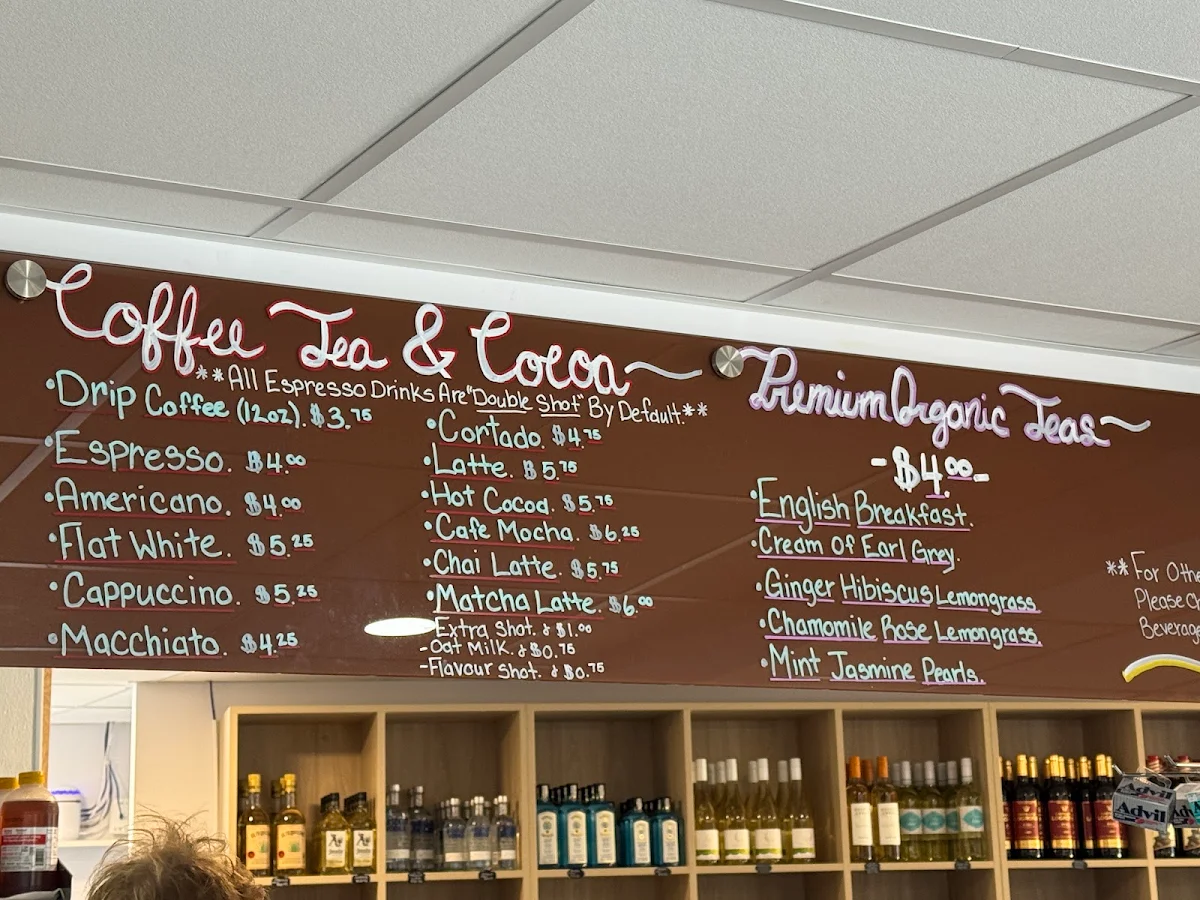 Coffee Tea & Cocoa
**All Espresso Drinks Are "Double Shot" By Default.**
•Drip Coffee (12oz). $3.75
•Espresso. $4.00
•Americano. $4.00
•Flat White. $5.25
•Cappuccino. $5.25
•Macchiato. $4.25
•Cortado. $4.75
•Latte. $5.75
•Hot Cocoa. $5.75
•Cafe Mocha. $6.25
•Chai Latte. $5.75
•Matcha Latte. $6.00
-Extra Shot. & $1.00
-Oat Milk. & $0.75
-Flavour Shot. & $0.75
Premium Organic Teas
-$4.00-
•English Breakfast.
•Cream Of Earl Grey.
•Ginger Hibiscus Lemongrass
•Chamomile Rose Lemongrass.
•Mint Jasmine Pearls.
**For Othe
Please Ch
Beverag
Advil
Advil